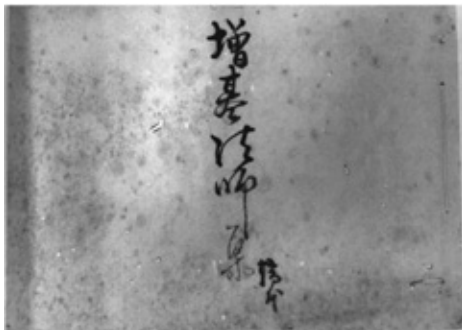 增基法師集